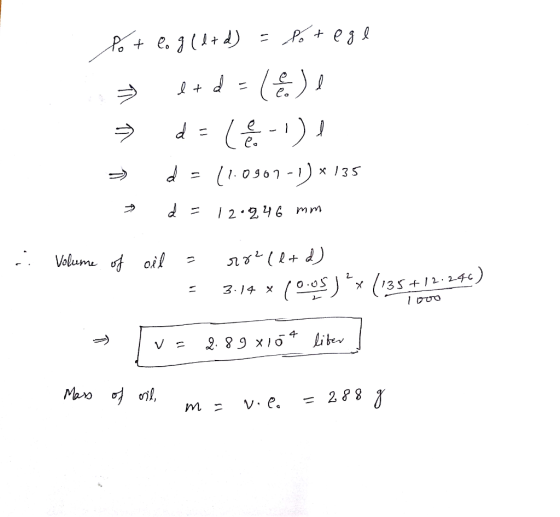 P₀ + ρ₀ g (l+d) = P₀ + ρ g l
⇒ l + d = (ρ/ρ₀) l
⇒ d = (ρ/ρ₀ - 1) l
⇒ d = (1.0907-1) × 135
⇒ d = 12.246 mm
∴ Volume of oil = πr² (l+d)
= 3.14 × (0.05/2)² × (135+12.246)/1000
⇒ V = 2.89 × 10⁻⁴ liter
Mass of oil, m = V.ρ₀ = 288 g